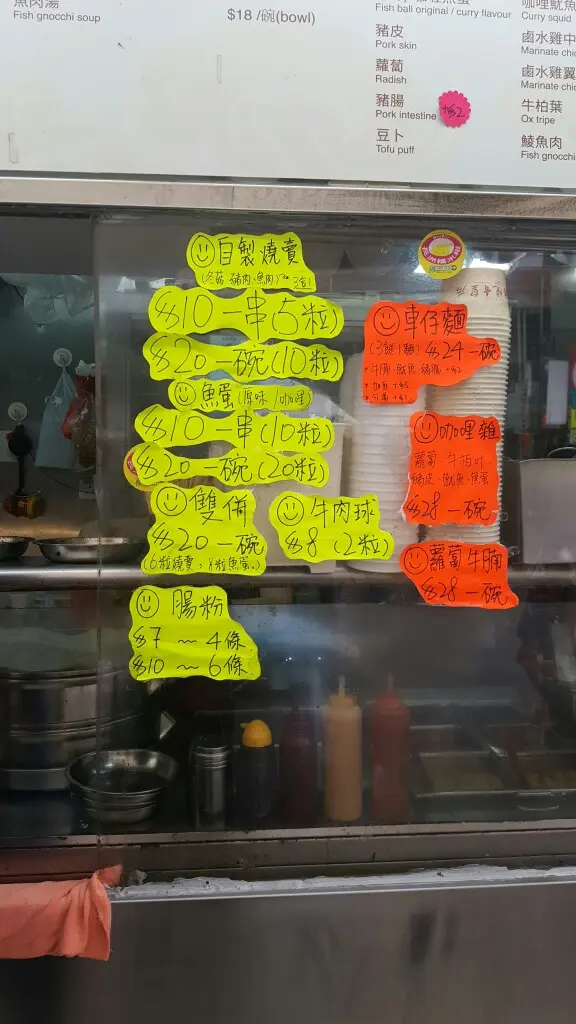 魚肉湯
Fish gnocchi soup
$18 /碗(bowl)
Fish ball original / curry flavour
豬皮
Pork skin
蘿蔔
Radish
豬腸
Pork intestine
+$2
豆卜
Tofu puff
咖哩魷魚
Curry squid
鹵水雞中
Marinate chic
鹵水雞翼
Marinate chic
牛柏葉
Ox tripe
鯪魚肉
Fish gnocchi
自製燒賣
(冬菇、豬肉、魚肉)
$10 一串(5粒)
$20 一碗(10粒)
魚蛋(原味/咖哩)
$10 一串(10粒)
$20 一碗(20粒)
雙併
$20 一碗
(6粒燒賣，8粒魚蛋。)
牛肉球
$8 (2粒)
腸粉
$7 ~ 4條
$10 ~ 6條
車仔麵
(3餸1麵) $24 一碗
咖哩雜
蘿蔔 牛柏叶
豬皮、魷魚、魚蛋
$28 一碗
蘿蔔牛腩
$28 一碗